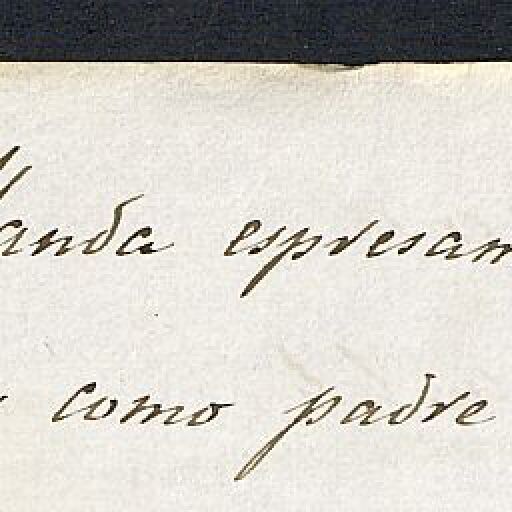 anda espresam
como padre